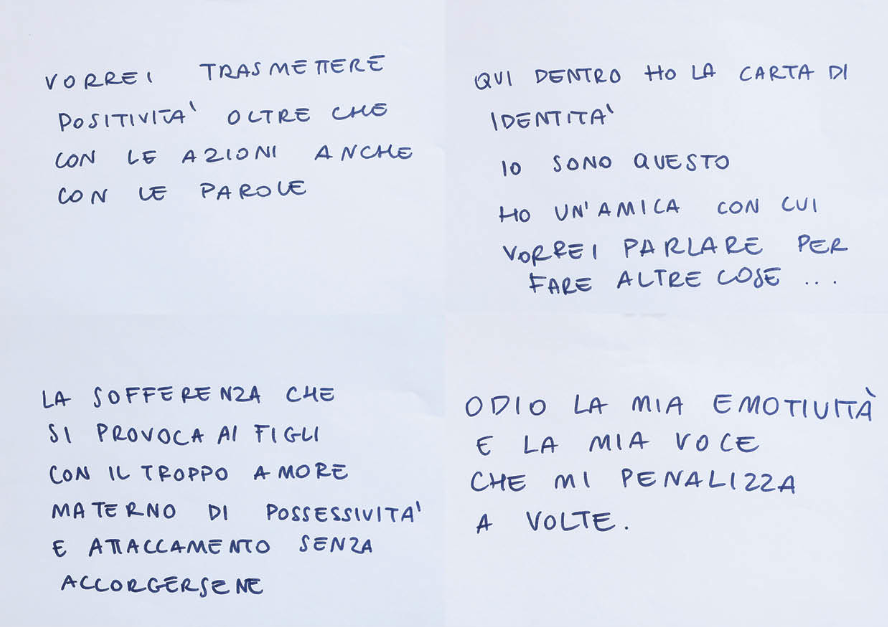 VORREI TRASMETTERE
POSITIVITA' OLTRE CHE
CON LE AZIONI ANCHE
CON LE PAROLE
QUI DENTRO HO LA CARTA DI
IDENTITA'
IO SONO QUESTO
HO UN'AMICA CON CUI
VORREI PARLARE PER
FARE ALTRE COSE ...
LA SOFFERENZA CHE
SI PROVOCA AI FIGLI
CON IL TROPPO AMORE
MATERNO DI POSSESSIVITA'
E ATTACCAMENTO SENZA
ACCORGERSENE
ODIO LA MIA EMOTIVITÀ
E LA MIA VOCE
CHE MI PENALIZZA
A VOLTE.